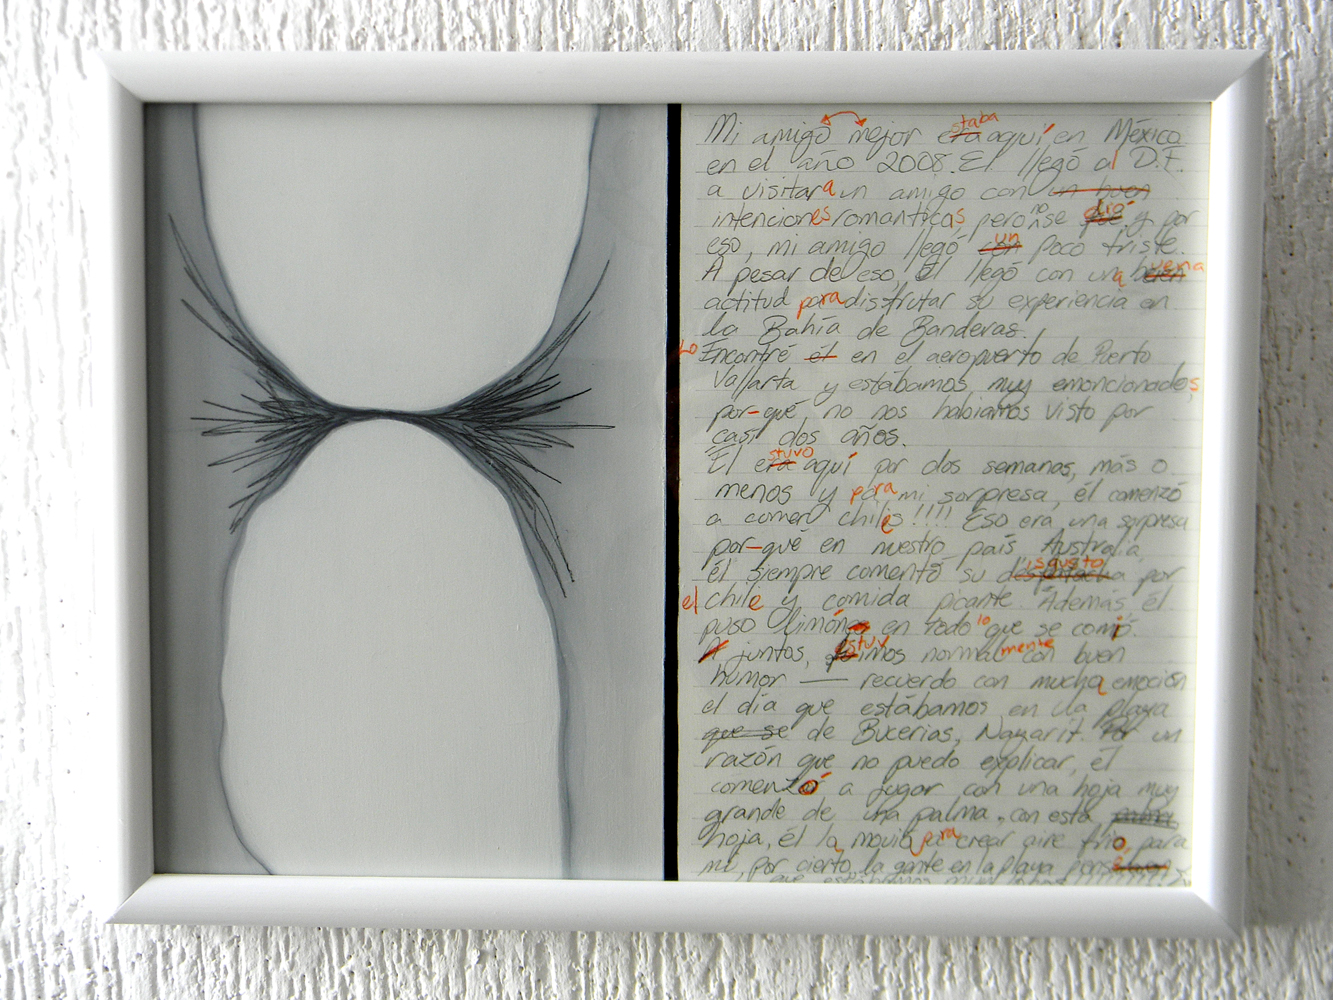 Mi amigo mejor era staba aquí en México
en el año 2008. El llegó al D.F.
a visitar a un amigo con un buen
intenciones romanticas pero no se dió y por
eso, mi amigo llegó con un poco triste.
A pesar de eso, El llegó con una buen uena
actitud para disfrutar su experiencia en
la Bahía de Banderas.
Lo Encontré él en el aeropuerto de Puerto
Vallarta y estábamos muy emoncionados
por-qué no nos habiamos visto por
casi dos años.
El era stuvo aquí por dos semanas, más o
menos y para mi sorpresa, él comenzó
a comer chiles!!!! Eso era una sorpresa
por-qué en nuestro país Australia
él siempre comentó su isgusto por
el chile y comida picante. Además él
puso limón en todo lo que se comió.
A juntos, stuvimos normalmente con buen
humor — recuerdo con mucha emoción
el día que estábamos en la playa
que se de Bucerias, Nayarit. Por un
razón que no puedo explicar, él
comenzó a jugar con una hoja muy
grande de una palma, con esta palma
hoja, él la movia para crear aire frio, para
mi, por cierto, la gente en la playa
que estábamos